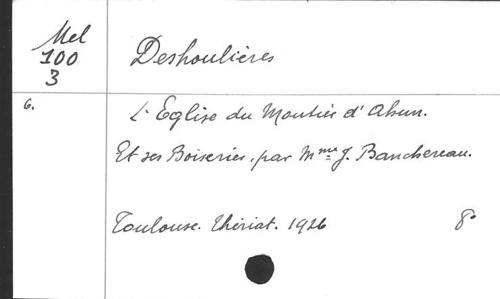 Mel
100
3
Deshoulières
6.
L'Eglise du Moutier d'Ahun.
Et ses Boiseries, par Mme J. Banchereau.
Toulouse. Thériat. 1926 8°